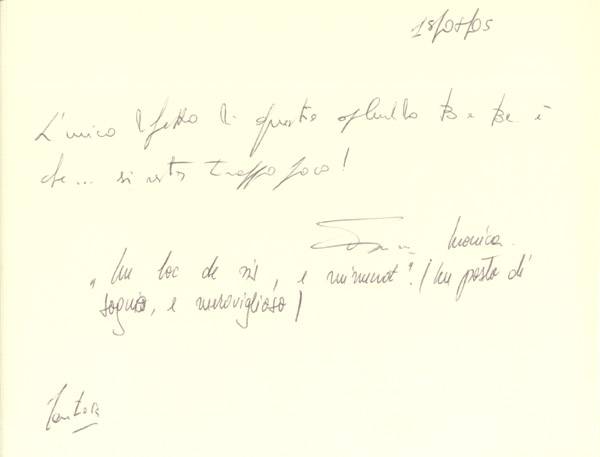 18/08/05
L'unico difetto di questo B e Be è
che... si resta troppo poco!
Monica
„Un loc de vis, e minunat". / Un posto di
sogno, e meraviglioso /
Mantova